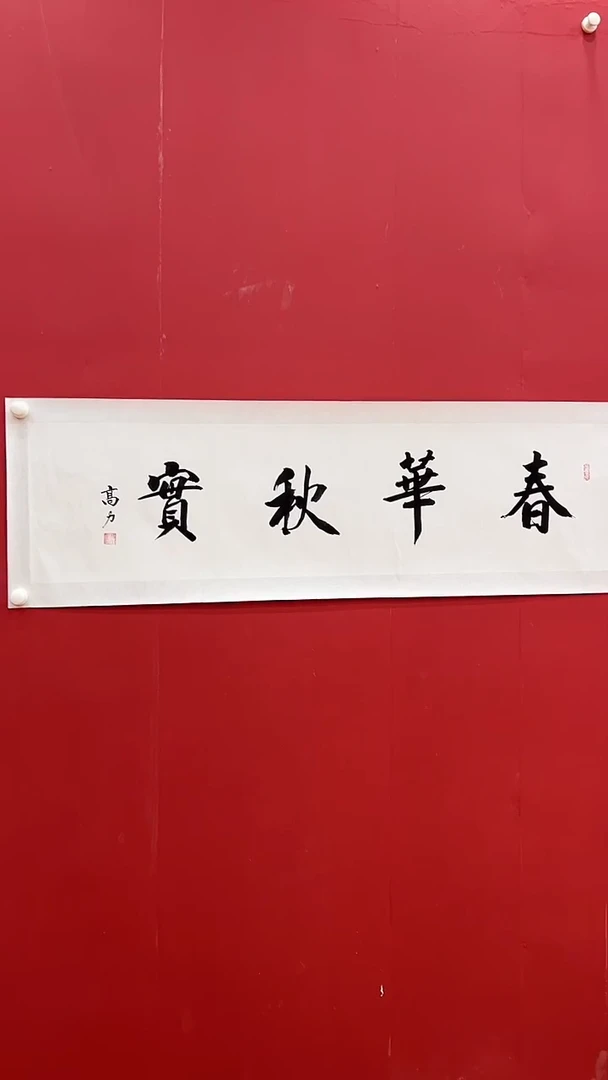 春華秋實
高力